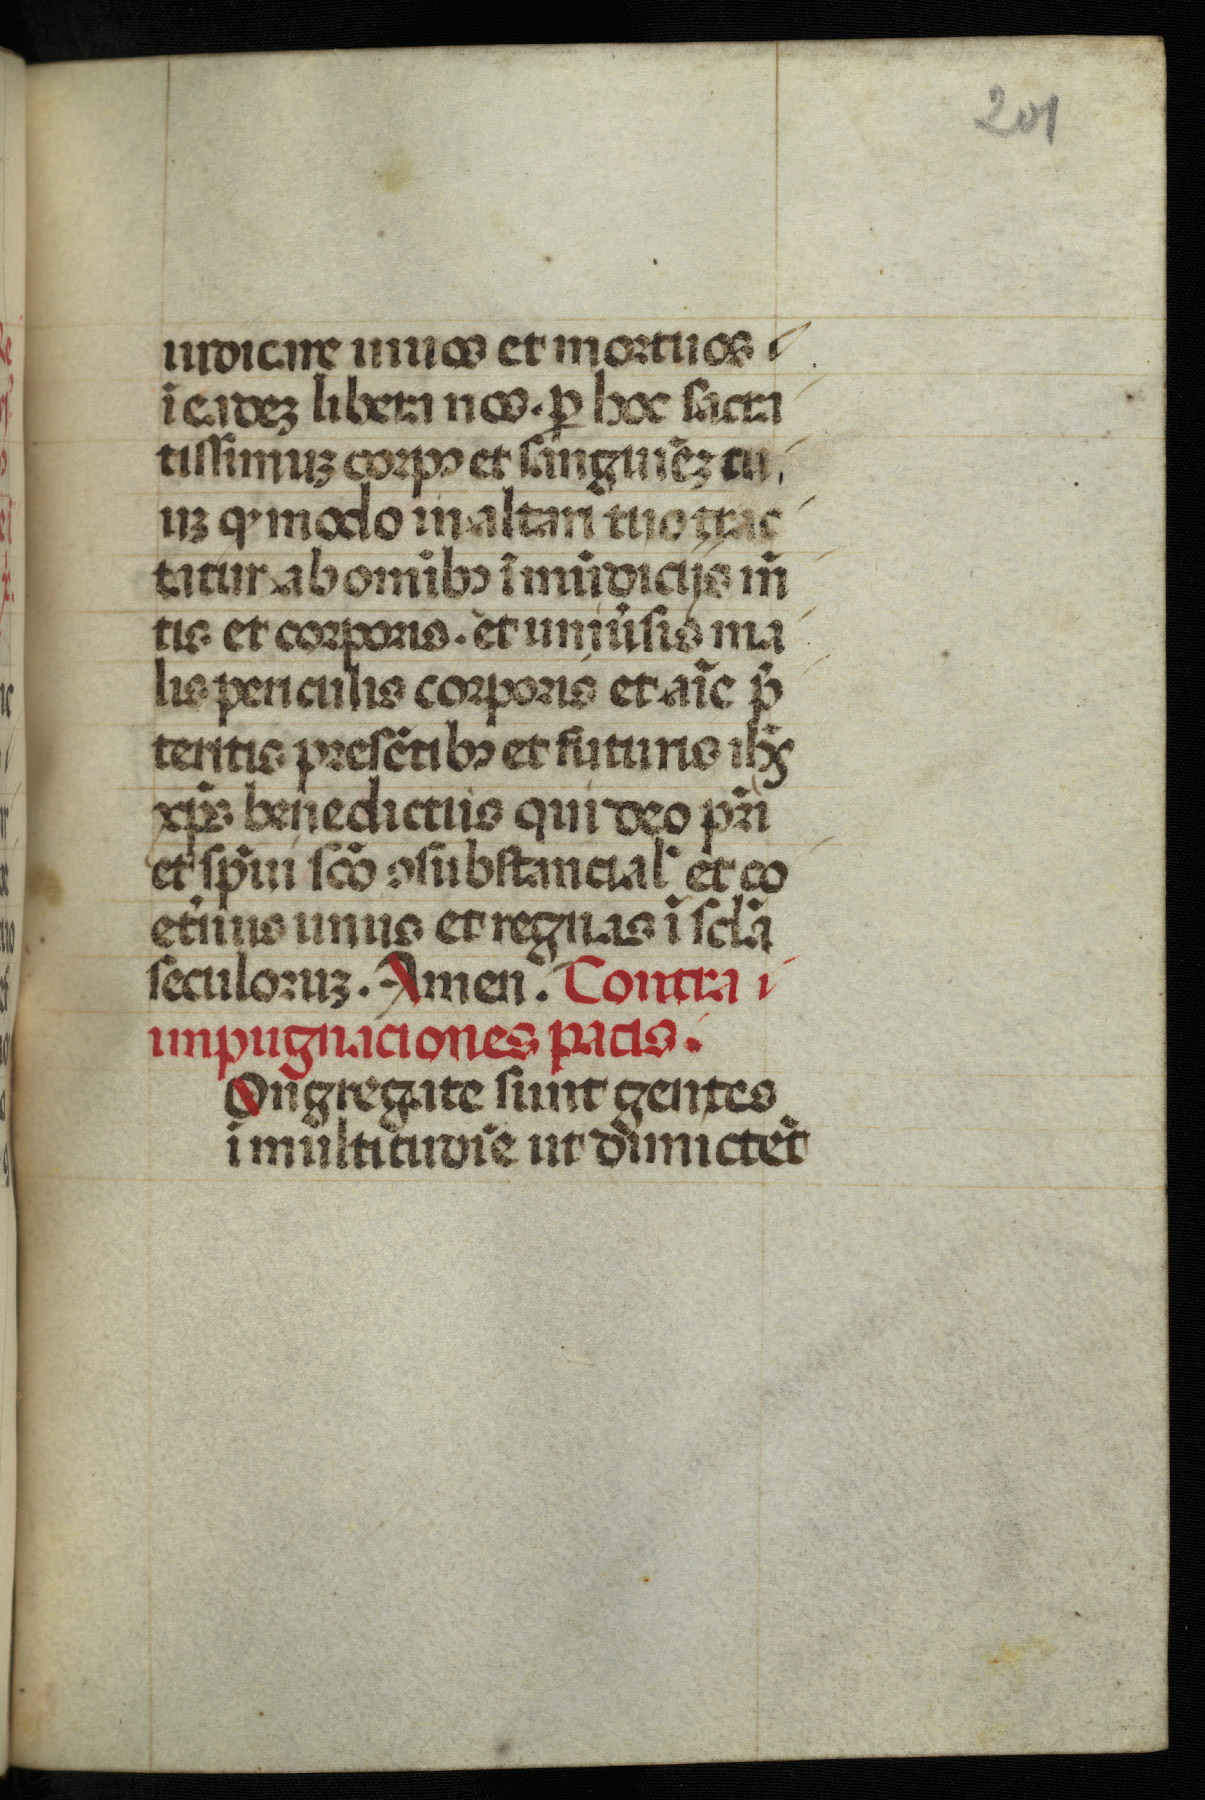 201
iudicare uiuos et mortuos
ī eadeʒ libera nos. ꝑ hoc sacra
tissimuʒ corpꝯ et sanguīeʒ tu
uʒ qͥ modo in altari tuo trac
tatur ab om̄ibꝯ īmūdicijs m̄
tis et corporis. et uniūsis ma
lis periculis corporis et aīe p̄
teritis presētibꝯ et futuris ihs̄
xp̄s benedictus qui deo pr̄i
et sp̄ui sc̄o ꝯsubstancial' et co
et̄nus uiuis et regnas ī scl̄a
seculoruʒ. Amen. Contra
inpugnaciones pacis.
Ongregate sunt gentes
ī multitudīe ut dimictēt